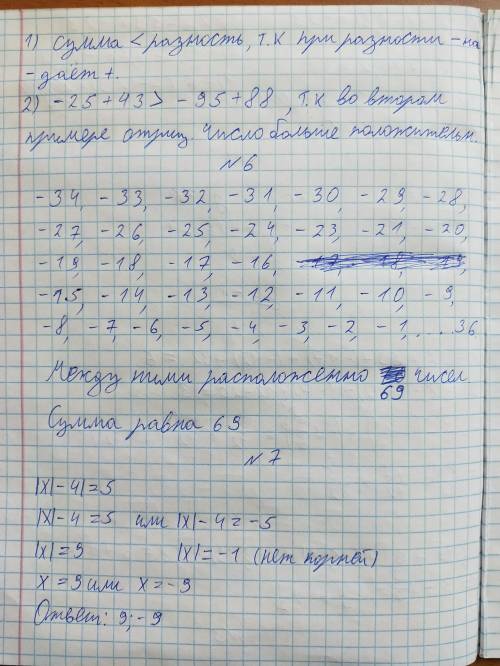 1) Сумма < разность, т.к при разности - на
- даёт +.
2) -25+43 > -95+88, т.к во втором
примере отриц. число больше положительн.
№6
-34, -33, -32, -31, -30, -29, -28,
-27, -26, -25, -24, -23, -21, -20,
-19, -18, -17, -16,
-15, -14, -13, -12, -11, -10, -9,
-8, -7, -6, -5, -4, -3, -2, -1, ... 36
Между ними расположенно 69 чисел
Сумма равна 69
№7
|х|-4|=5
|х|-4=5 или |х|-4=-5
|х|=9 |х|=-1 (нет корней)
х=9 или х=-9
Ответ: 9;-9